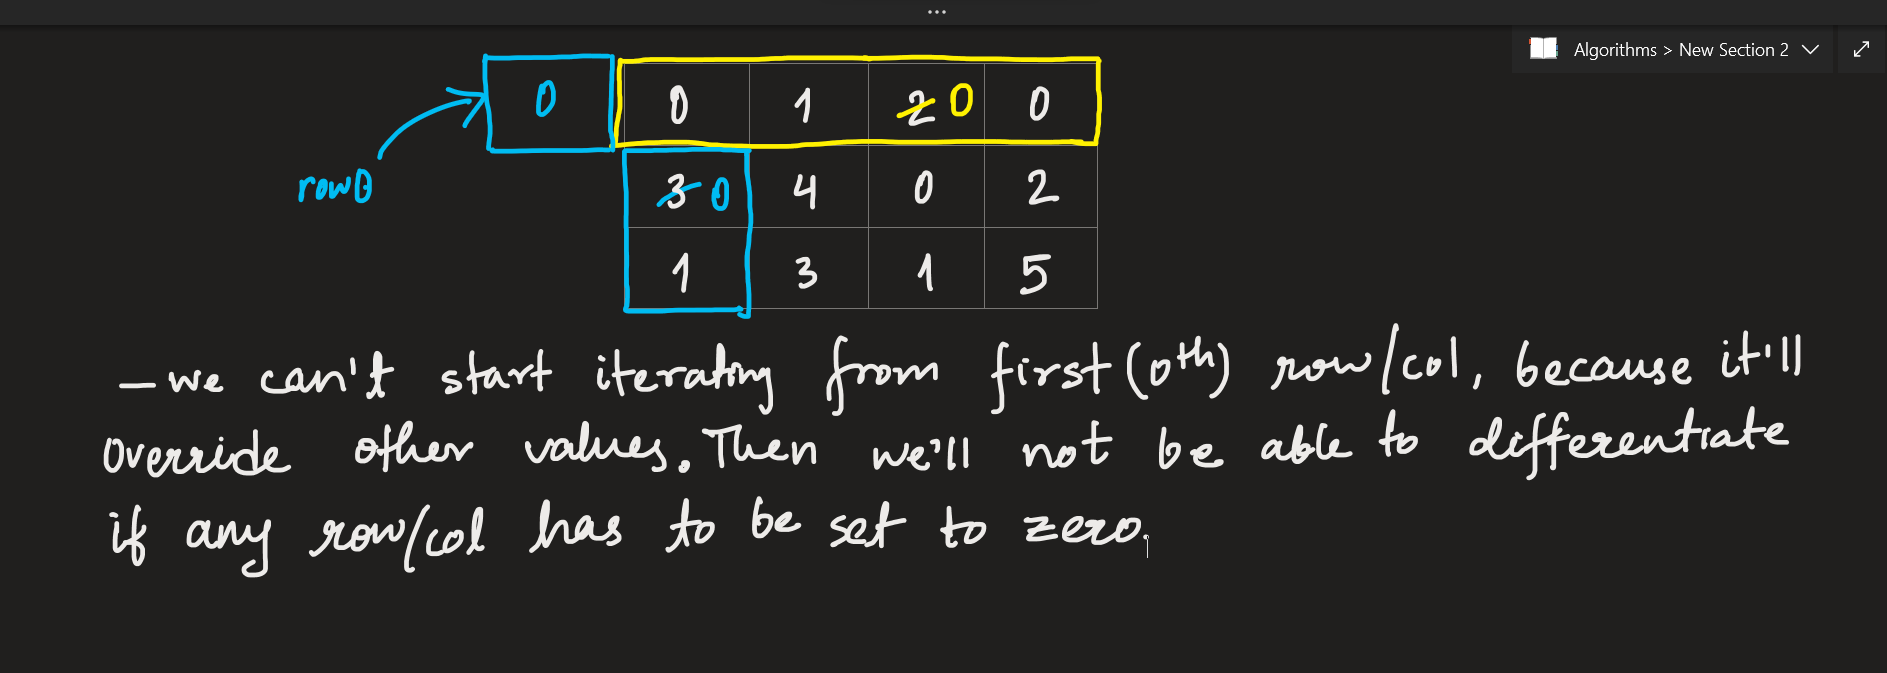 Algorithms > New Section 2
0 0 1 2 0 0
row0
3 0 4 0 2
1 3 1 5
– we can't start iterating from first (0th) row/col, because it'll
override other values. Then we'll not be able to differentiate
if any row/col has to be set to zero.